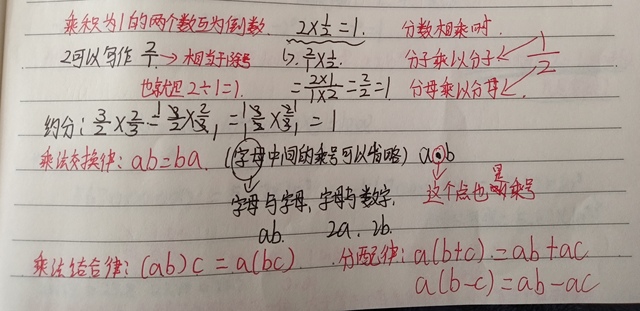 乘积为1的两个数互为倒数. 2×1/2=1. 分数相乘时.
2可以写作 2/1 → 相当于除号 ↳ 2/1×1/2. 分子乘以分子 ← 1/2
也就是 2÷1=). =2×1/1×2=2/2=1 分母乘以分母 ←
约分: 3/2×2/3=3/2×2/3 1 =1 3/2×2/3 1 =1
乘法交换律: ab=ba. (字母中间的乘号可以省略) a·b
字母与字母, 字母与数字, 这个点也是乘号
ab. 2a. 2b.
乘法结合律: (ab)c=a(bc). 分配律: a(b+c).=ab+ac
a(b-c)=ab-ac